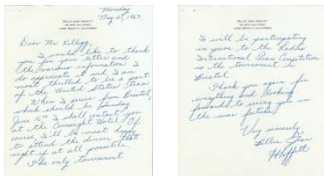 Monday
May 21, 1962
Dear Mr. Kellogg,
I would like to thank
you for your letter and
the furnished information. I
do appreciate it and I am
most thrilled to be a part
of the United States Team.
When I arrive in Bristol,
which should be Sunday,
June 10th I shall contact you
at the Connaught Hotel. Of
course, I'll be most happy
to attend the dinner that
night if at all possible.
The only tournament
I will be participating
in prior to the
International Team Competition
is the tournament in
Bristol.
Thank you again for
everything and looking
forward to seeing you in
the near future,
Very sincerely,
Billie Jean
Moffitt